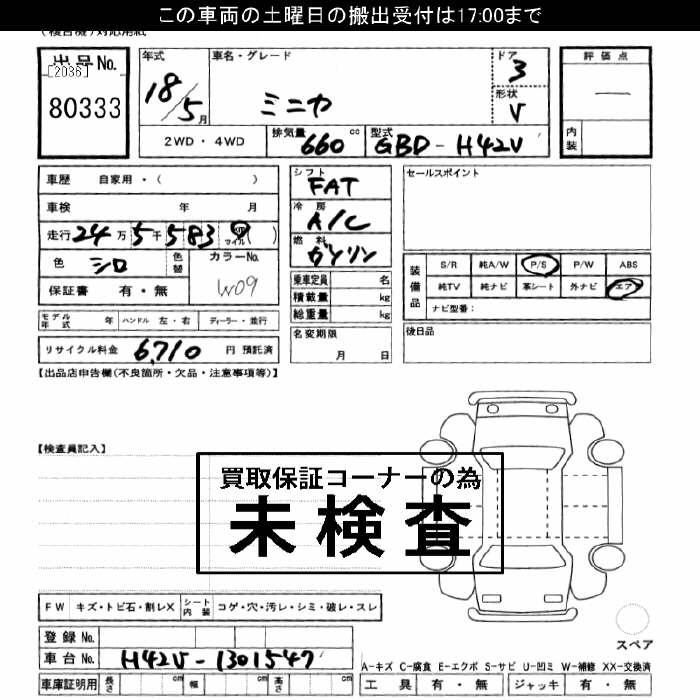 この車両の土曜日の搬出受付は17:00まで
出品No.
[2036]
80333
年式
18/5月
車名・グレード
ミニカ
ドア
3
形状
V
評価点
―
内装
2WD・4WD
排気量 660 cc
型式 GBD-H42V
車歴 自家用・( )
車検 年 月
走行 24万5千583 km マイル ( )
色 シロ 色替
カラーNo. W09
保証書 有・無
モデル年式 年 ハンドル 左・右 ディーラー・並行
リサイクル料金 6,710 円 預託済
シフト FAT
冷房 A/C
燃料 ガソリン
乗車定員 名
積載量 kg
総重量 kg
名変期限
月 日
セールスポイント
装備品
S/R 純A/W P/S P/W ABS
純TV 純ナビ 革シート 外ナビ エア
ナビ型番:
後日品
【出品店申告欄(不良箇所・欠品・注意事項等)】
【検査員記入】
買取保証コーナーの為
未検査
FW キズ・トビ石・割レX シート内装 コゲ・穴・汚レ・シミ・破レ・スレ
登録No.
車台No. H42V-1301547
車庫証明用 長さ cm 幅 cm 高さ cm
スペア
A-キズ C-腐食 E-エクボ S-サビ U-凹ミ W-補修 XX-交換済
工具 有・無 ジャッキ 有・無